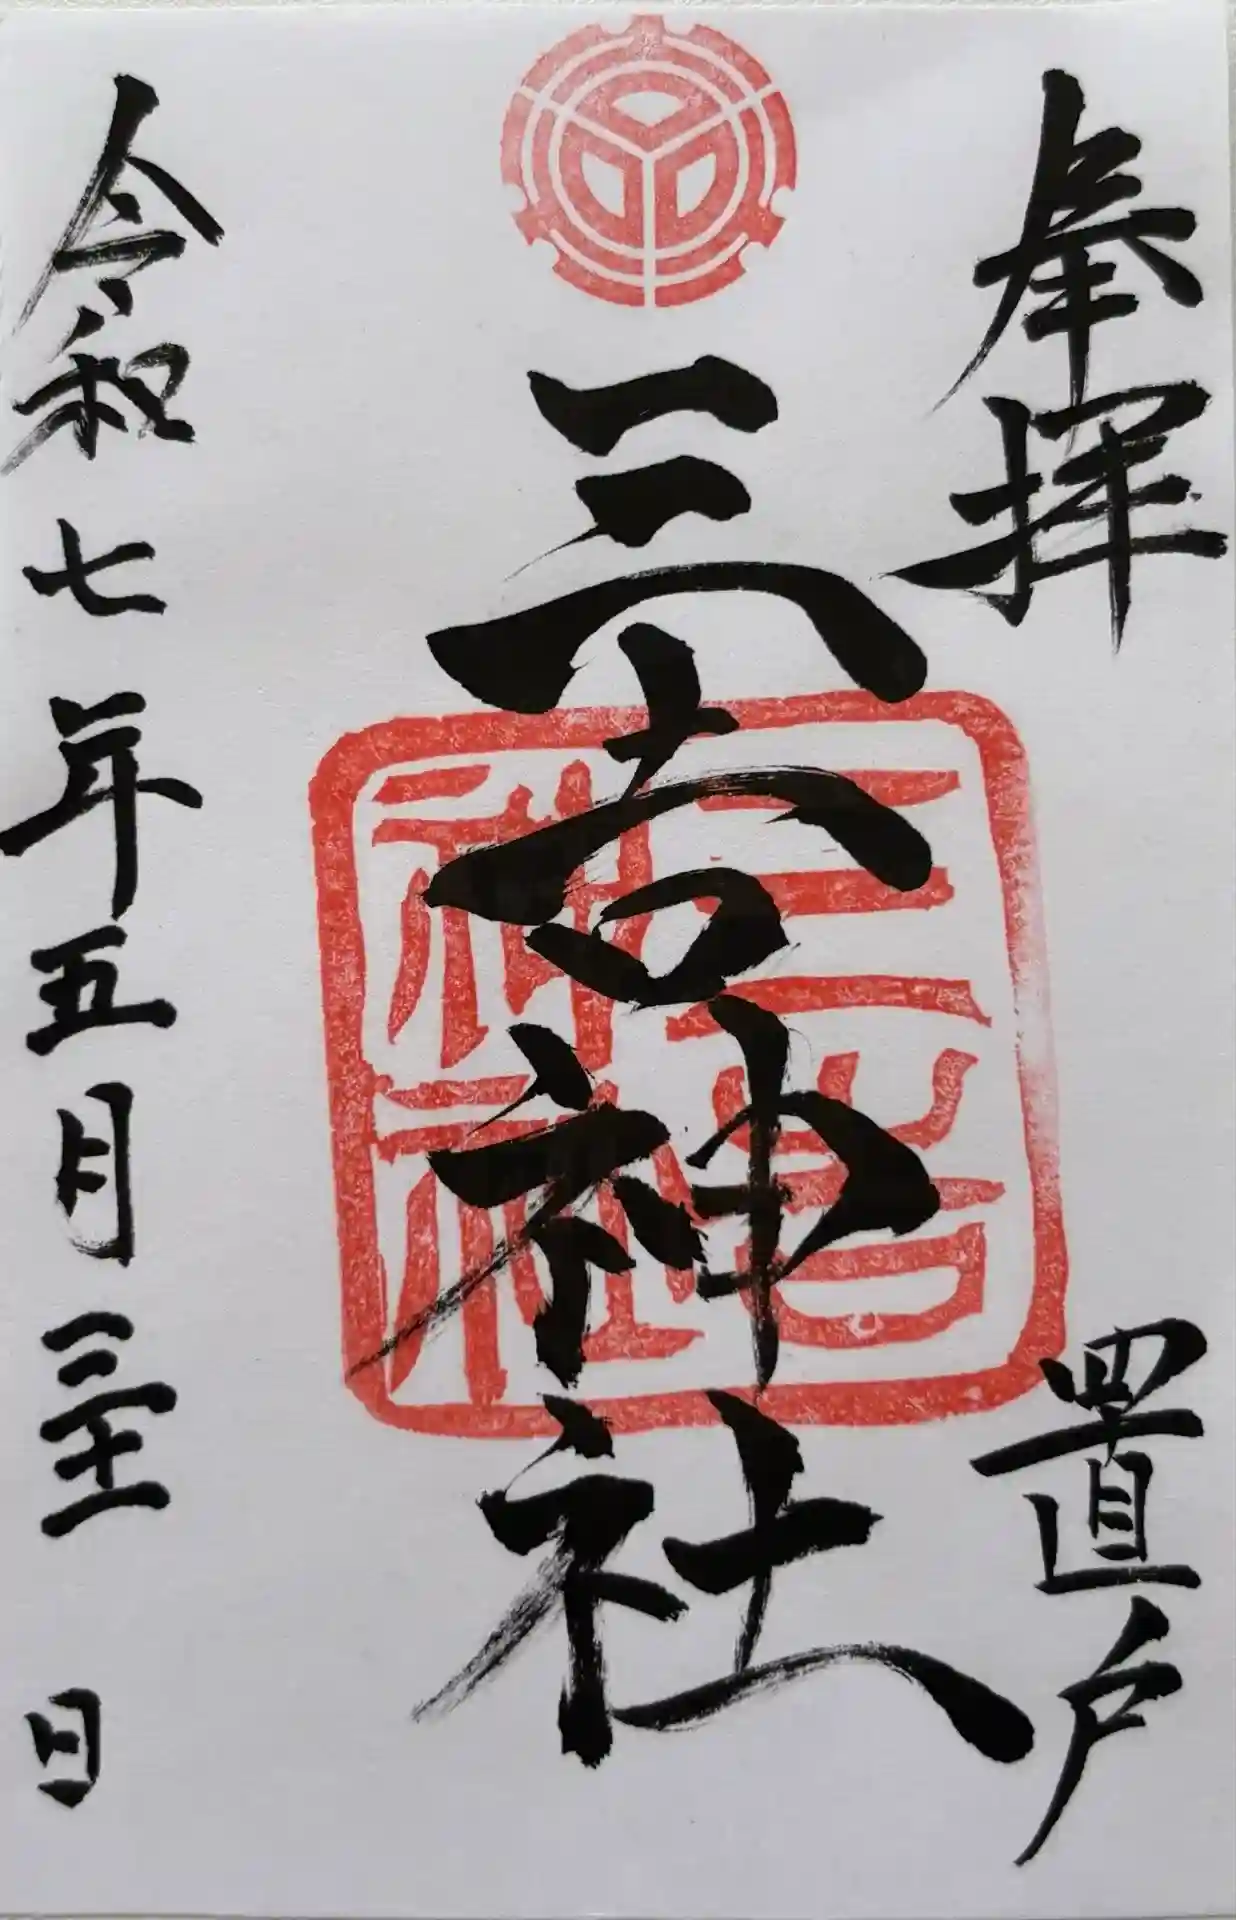 奉拝
置戸
三吉神社
三吉
神社
令和七年五月三十一日